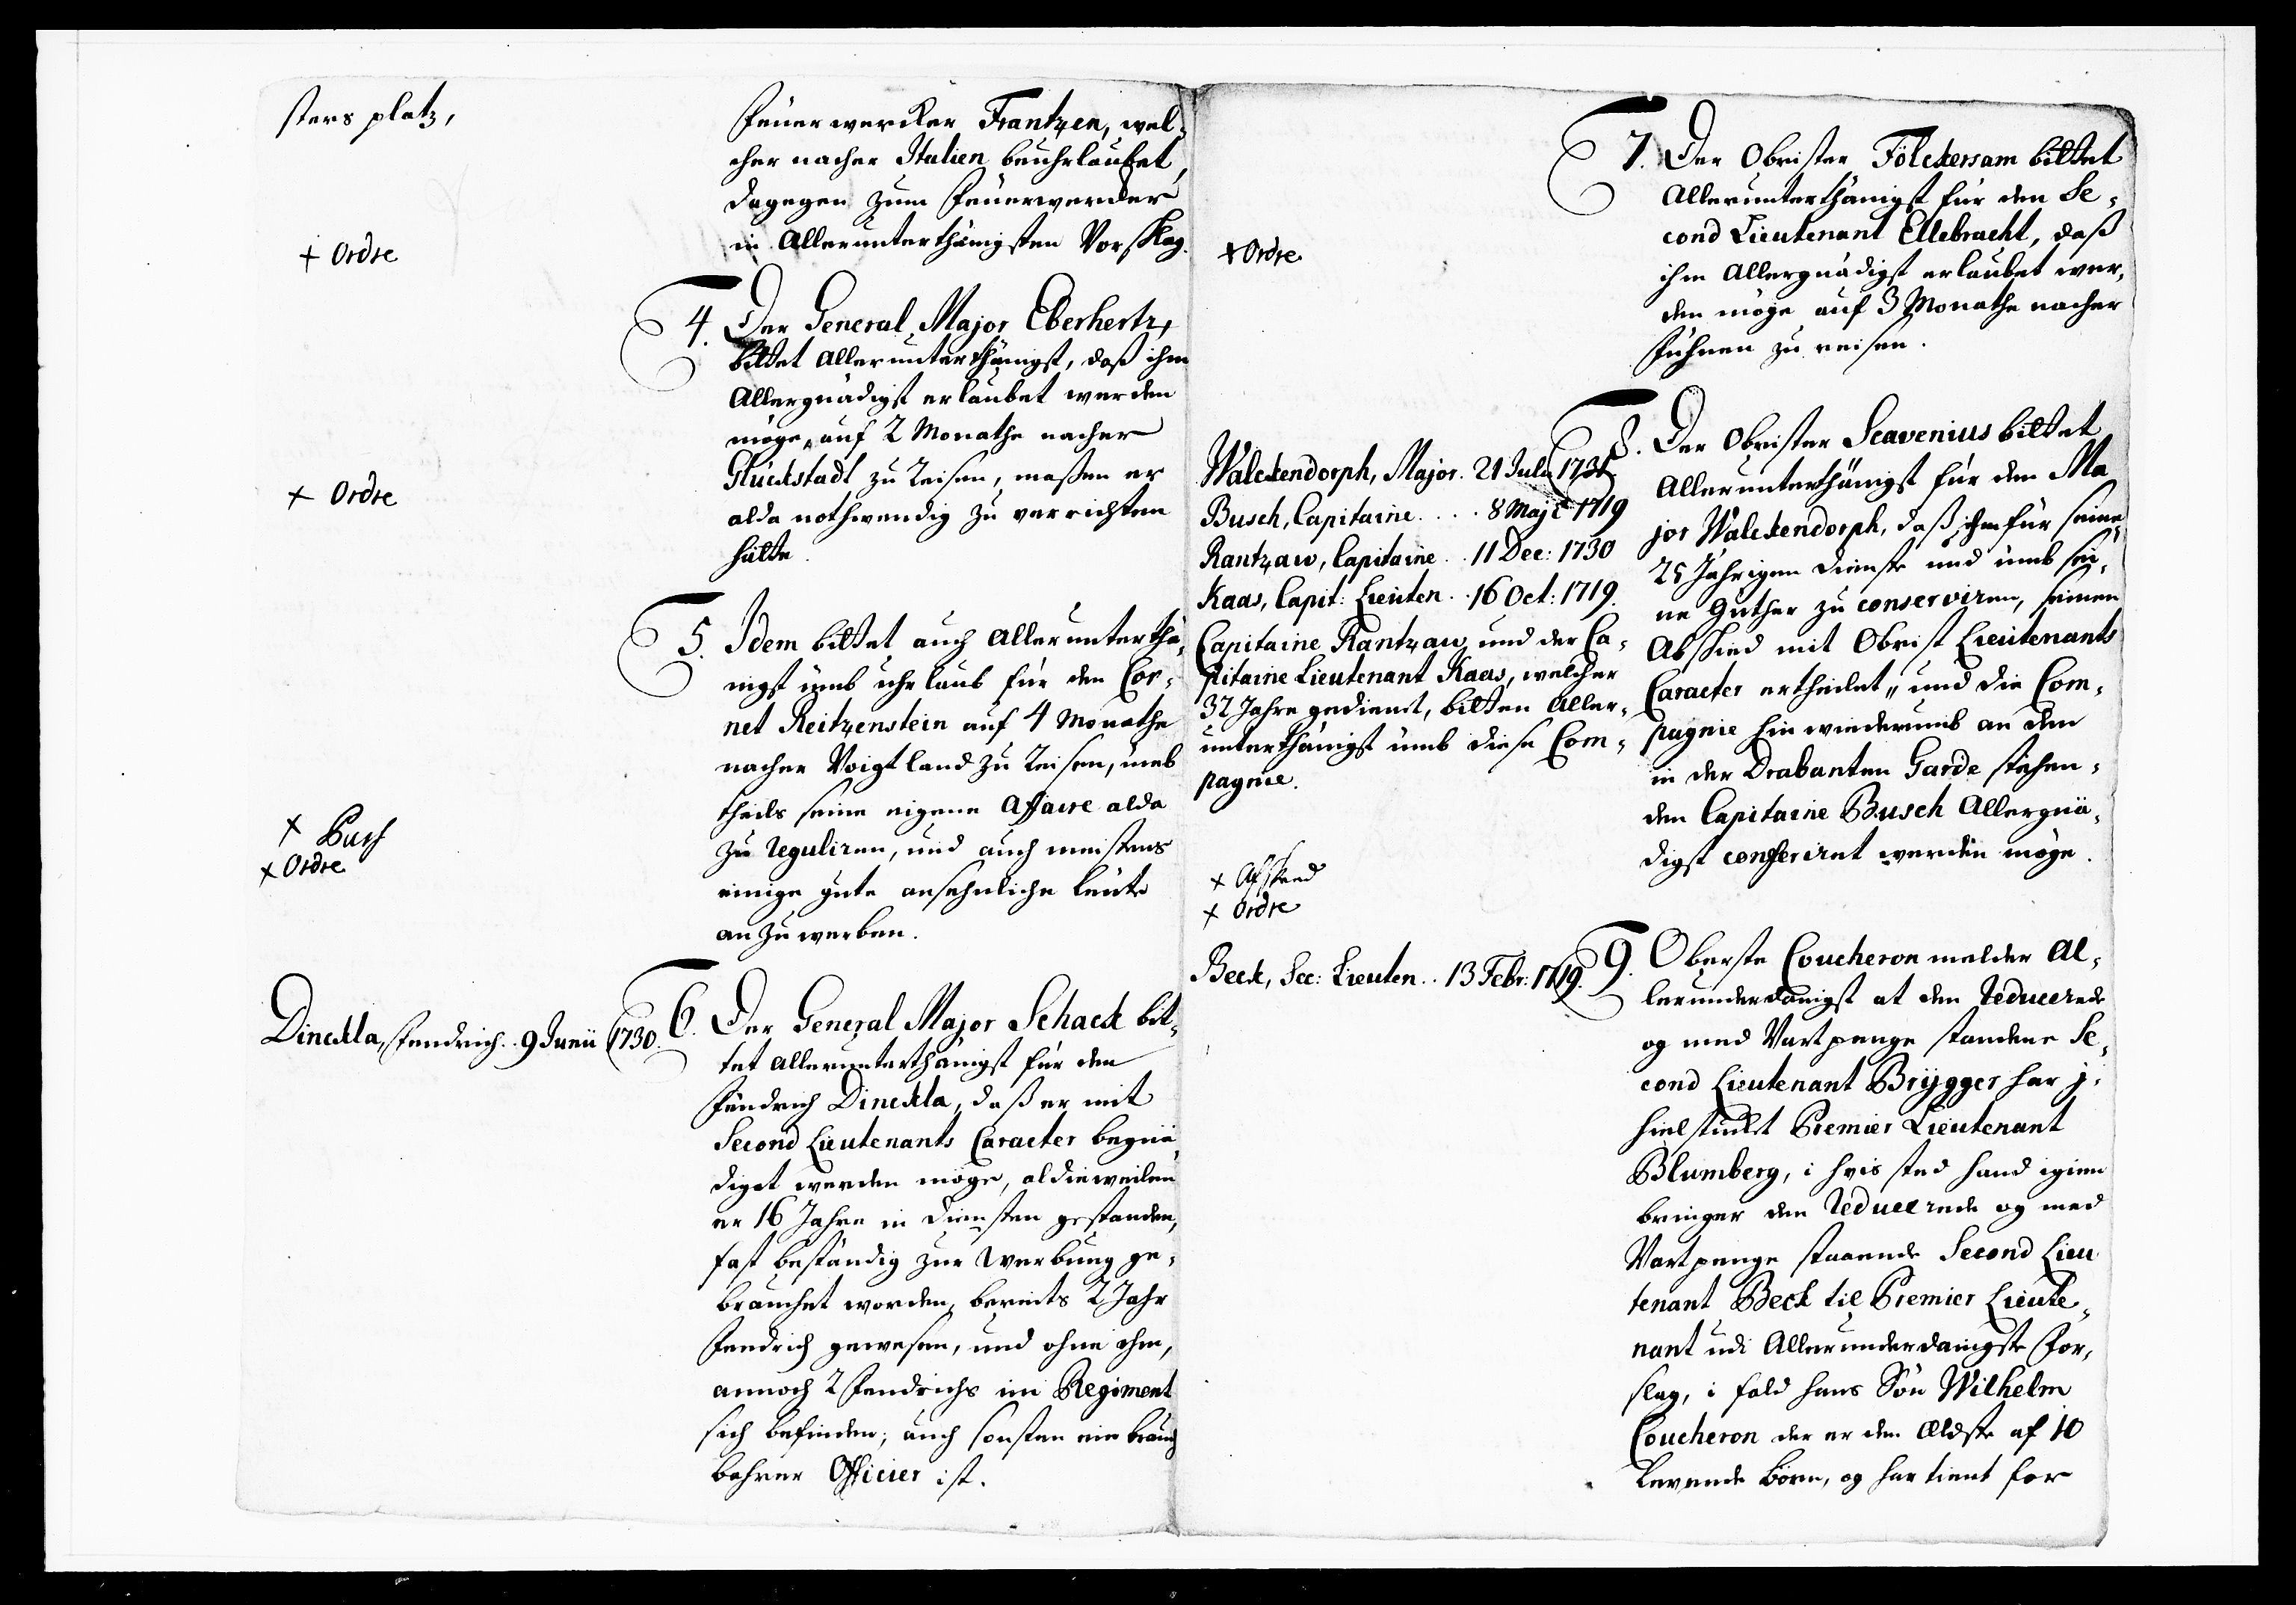 sters platz,
+ Ordre
+ Ordre
+ Pass
+ Ordre
Dinckla, Fendrich. 9 Junii 1730.
Feuerwercker Frantzen, wel-
cher nacher Italien beuhrlaubet,
dagegen zum Feuerwercker
in Allerunterthänigsten Vorschlag.
4. Der General Major Eberhertz,
bittet Allerunterthänigst, daß ihm
Allergnädigst erlaubet werden
möge, auf 2 Monathe nacher
Glückstadt zu Reisen, maßen er
alda nothwendig zu verrichten
hätte.
5. Idem bittet auch Allerunterthä-
nigst umb uhrlaub für den Cor-
net Reitzenstein auf 4 Monathe
nacher Voigtland zu Reisen, umb
theils seine eigene Affaire alda
zu Reguliren, und auch meistens
einige gute ansehnliche Leute
anzuwerben.
6. Der General Major Schack bit-
tet Allerunterthänigst für den
Fendrich Dinckla, daß er mit
Second Lieutenants Caracter begnä-
diget werden möge, aldieweilen
er 16 Jahre in Diensten gestanden,
fast beständig zur Werbung ge-
brauchet worden, bereits 2 Jahr
Fendrich gewesen, und ohne ihm,
annoch 2 Fendrichs im Regiment
sich befinden, auch sonsten ein brauch
bahrer Officier ist.
+ Ordre
Walckendorph, Major. 21 Julii 1731
Busch, Capitaine. . . . 8 Maji 1719
Rantzaw, Capitaine . . 11 Dec: 1730
Kaas, Capit: Lieuten. . 16 Oct: 1719.
Capitaine Rantzau und der Ca-
pitaine Lieutenant Kaas, welcher
32 Jahre gedienet, bitten Aller-
unterthänigst umb diese Com-
pagnie.
+ Afskeed
+ Ordre
Beck, Sec: Lieuten. . 13 Febr: 1719.
7. Der Obrister Fölckersam bittet
Allerunterthänigst für den Se-
cond Lieutenant Ellebracht, daß
ihm Allergnädigst erlaubet wer-
den möge auf 3 Monathe nacher
Fühnen zu reisen.
8. Der Obrister Scavenius bittet
Allerunterthänigst für den Ma
jor Walckendorph, daß ihm für seine
25 Jährigen Dienste und umb sei-
ne Güther zu conserviren, seinen
Abschied mit Obrist Lieutenants
Caracter ertheilet, und die Com-
pagnie hinwiederumb an den
in der Drabanten Garde stehen-
den Capitaine Busch Allergnä-
digst conferiret werden möge.
9. Oberste Coucheron melder Al-
lerunderdanigst at den Reducerede
og med Vartpenge standene Se-
cond Lieutenant Brygger har j-
hielstuckt Premier Lieutenant
Blumberg, i hvis sted hand igien
bringer den Reducerede og med
Vartpenge staaende Second Lieu
tenant Beck til Premier Lieute-
nant udi Allerunderdanigste For-
slag, i fald hans Sön Wilhelm
Coucheron der er den Ældste af 10
Levende börn, og har tient for